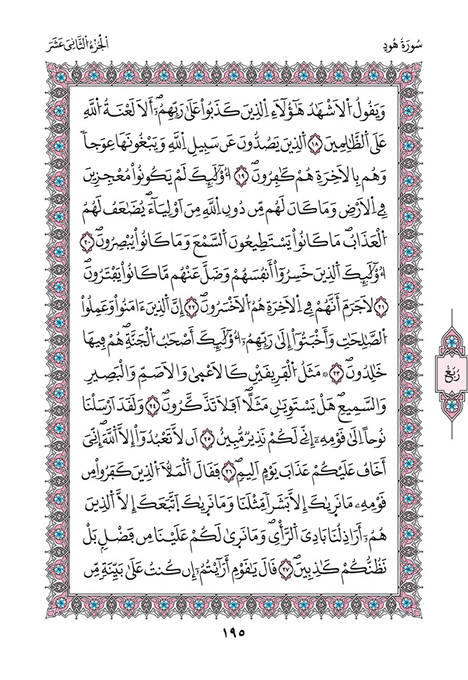 سُورَةُ هُودٍ
اَلْجُزْءُ الثَّانِي عَشَرَ
وَيَقُولُ الْأَشْهَٰدُ هَٰٓؤُلَآءِ الذِينَ كَذَبُواْ عَلَىٰ رَبِّهِمُۥٓ أَلَا لَعْنَةُ اُللَّهِ
عَلَى اَلظَّٰلِمِينَ ١٨ اَلذِينَ يَصُدُّونَ عَن سَبِيلِ اِللَّهِ وَيَبْغُونَهَا عِوَجاً
وَهُم بِالْأَخِرَةِ هُمْ كَٰفِرُونَ ١٩ أُوْلَٰٓئِكَ لَمْ يَكُونُواْ مُعْجِزِينَ
فِي اِلْأَرْضِ وَمَا كَانَ لَهُم مِّن دُونِ اِللَّهِ مِنَ اَوْلِيَآءَ يُضَٰعَفُ لَهُمُ
الْعَذَابُ مَا كَانُواْ يَسْتَطِيعُونَ اَلسَّمْعَ وَمَا كَانُواْ يُبْصِرُونَ ٢٠
أُوْلَٰٓئِكَ اَلذِينَ خَسِرُوٓاْ أَنفُسَهُمْ وَضَلَّ عَنْهُم مَّا كَانُواْ يَفْتَرُونَ
٢١ لَا جَرَمَ أَنَّهُمْ فِي اِلْأَخِرَةِ هُمُ اُلْأَخْسَرُونَ ٢٢ إِنَّ اَلذِينَ ءَامَنُواْ وَعَمِلُواْ
الصَّٰلِحَٰتِ وَأَخْبَتُوٓاْ إِلَىٰ رَبِّهِمُۥٓ أُوْلَٰٓئِكَ أَصْحَٰبُ الْجَنَّةِ هُمْ فِيهَا
خَٰلِدُونَ ٢٣ ۞ مَثَلُ الْفَرِيقَيْنِ كَالْأَعْمَىٰ وَالْأَصَمِّ وَالْبَصِيرِ
وَالسَّمِيعِ هَلْ يَسْتَوِيَٰنِ مَثَلاً اَفَلَا تَذَّكَّرُونَ ٢٤ وَلَقَدَ اَرْسَلْنَا
نُوحاً اِلَىٰ قَوْمِهِۦٓ إِنِّي لَكُمْ نَذِيرٌ مُّبِينٌ ٢٥ اَن لَّا تَعْبُدُوٓاْ إِلَّا اَللَّهَ إِنِّيَ
أَخَافُ عَلَيْكُمْ عَذَابَ يَوْمٍ اَلِيمٍ ٢٦ فَقَالَ اَلْمَلَأُ الذِينَ كَفَرُواْ مِن
قَوْمِهِۦ مَا نَرَىٰكَ إِلَّا بَشَراً مِّثْلَنَا وَمَا نَرَىٰكَ اَتَّبَعَكَ إِلَّا اَلذِينَ
هُمُۥٓ أَرَاذِلُنَا بَادِيَ اَلرَّأْيِ وَمَا نَرَىٰ لَكُمْ عَلَيْنَا مِن فَضْلِۭ بَلْ
نَظُنُّكُمْ كَٰذِبِينَ ٢٧ قَالَ يَٰقَوْمِ أَرَٰيْتُمُۥٓ إِن كُنتُ عَلَىٰ بَيِّنَةٍ مِّن
رُبْعُ
١٩٥